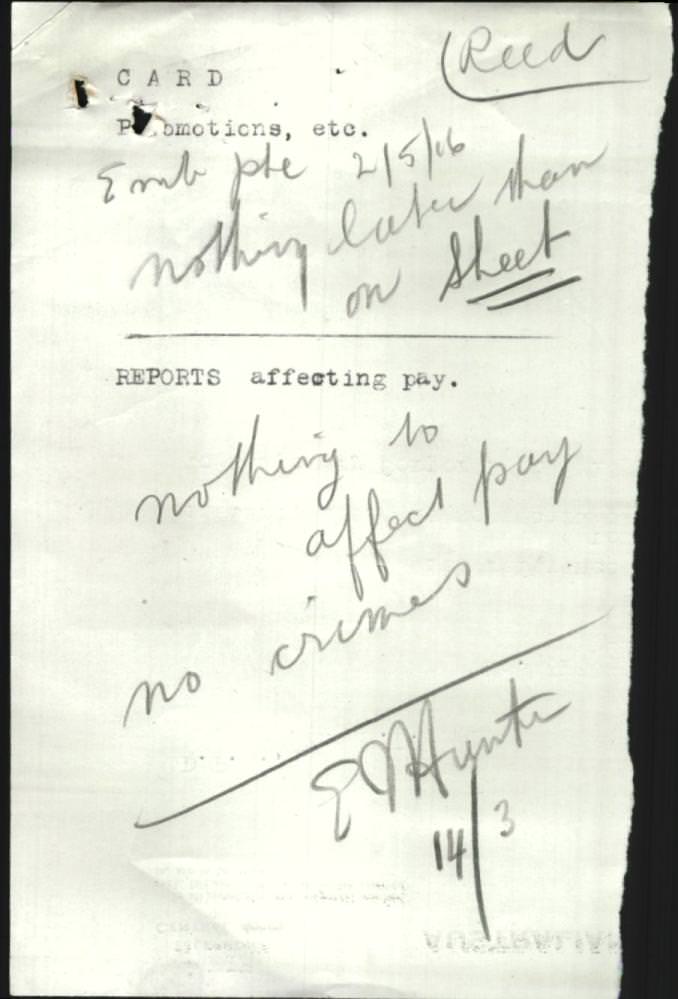 (Reed
CARD
Promotions, etc.
Emb pte 2/5/16
nothing later than
on Sheet
REPORTS affecting pay.
nothing to
affect pay
no crimes
E M Hunter
14/3
AUSTRALIAN